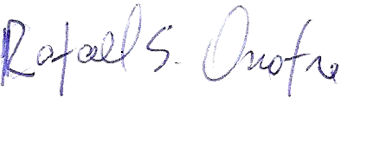 Rafael S. Onofre